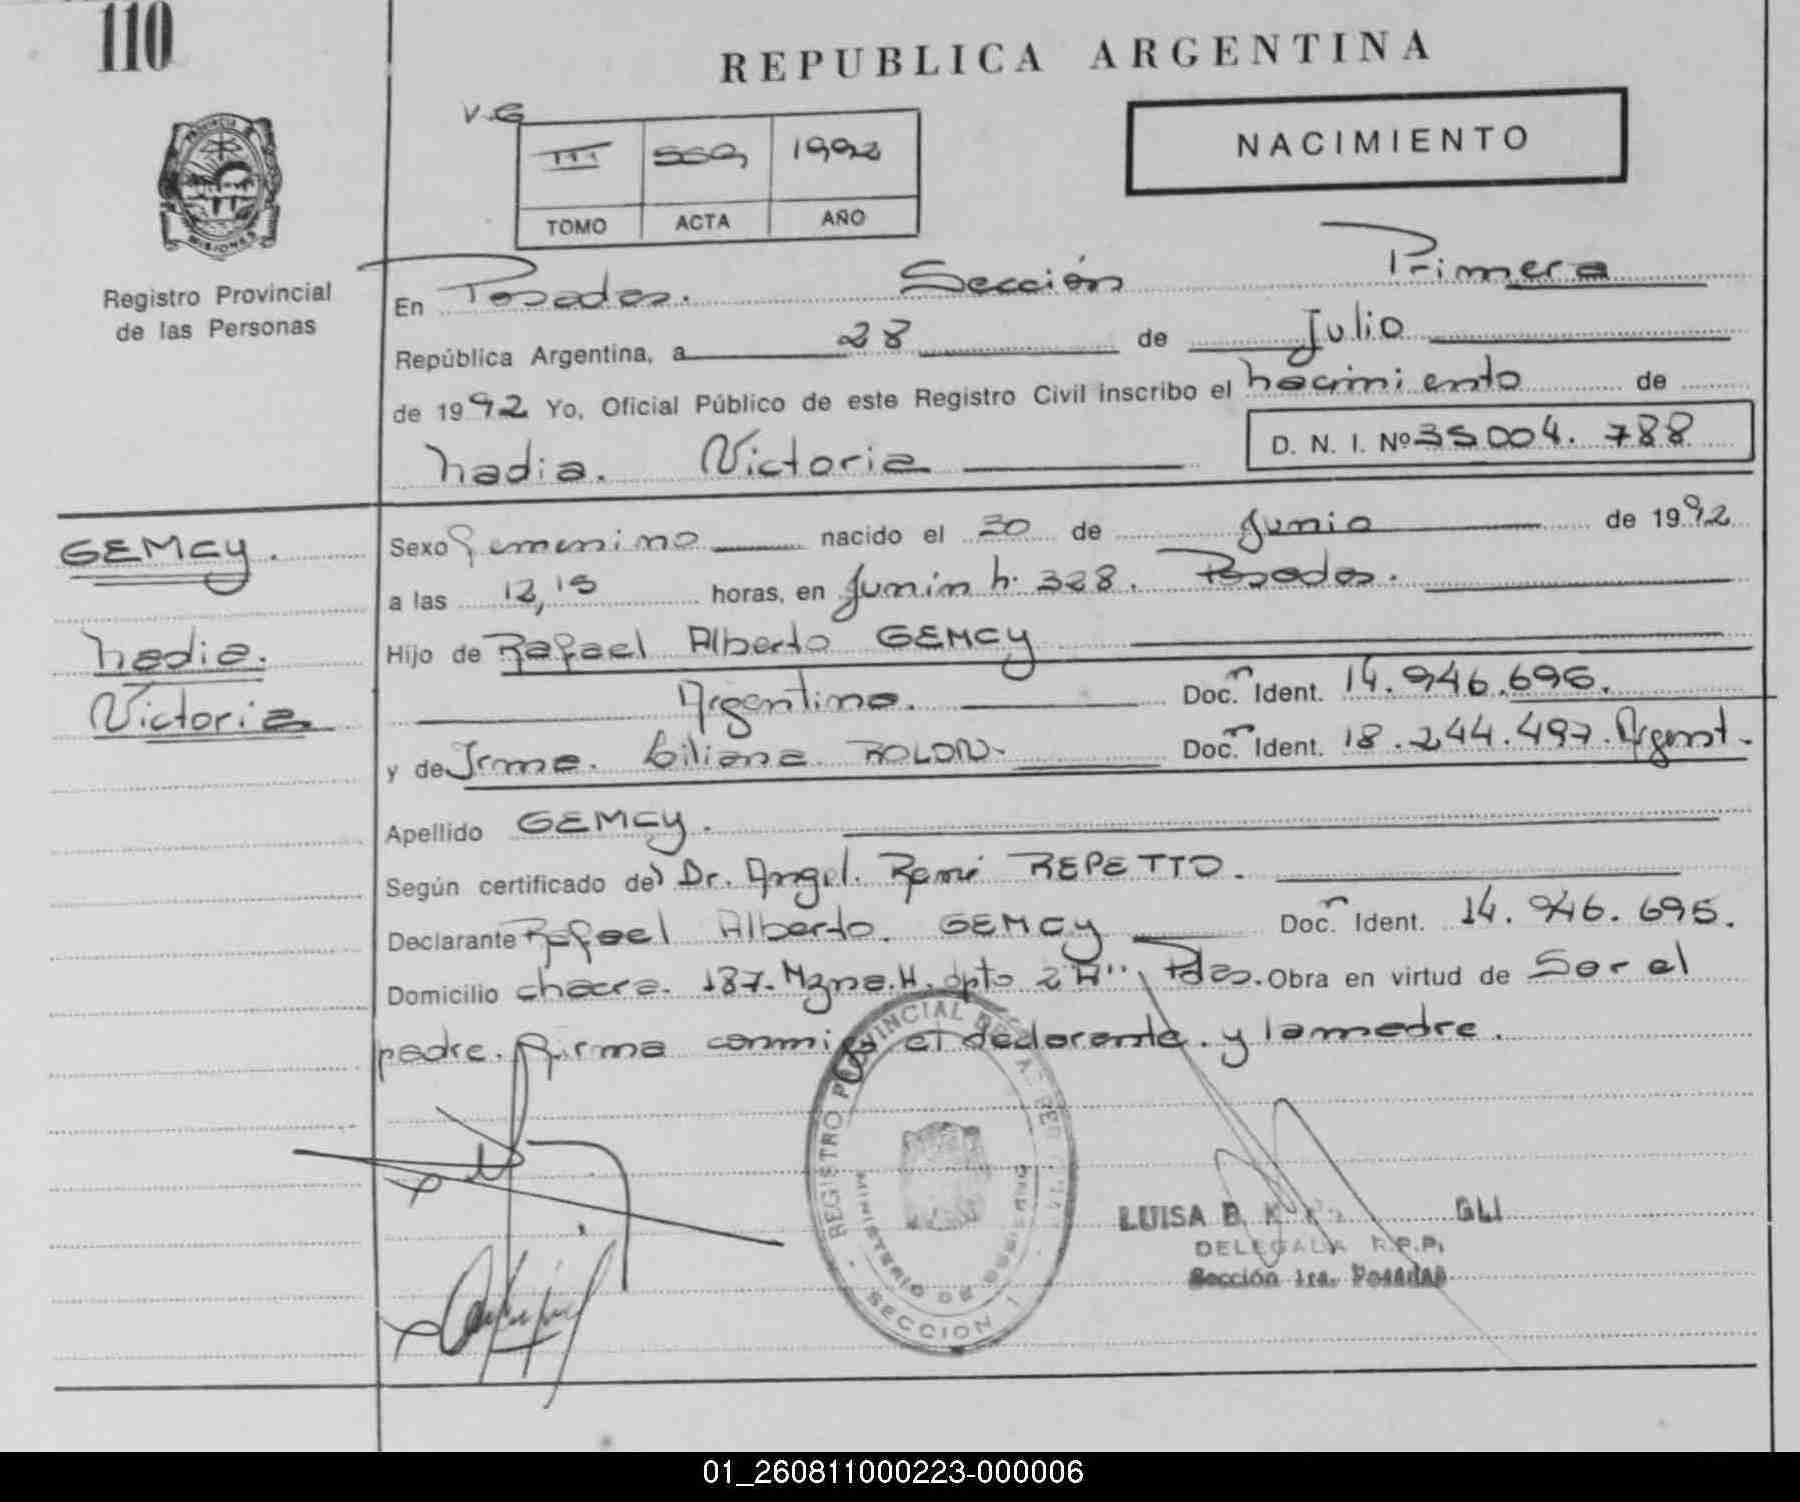 110
REPUBLICA ARGENTINA
NACIMIENTO
V.G
III 559 1992
TOMO ACTA AÑO
PROVINCIA
MISIONES
Registro Provincial
de las Personas
En Posadas. Sección Primera
República Argentina, a 28 de Julio
de 1992 Yo, Oficial Público de este Registro Civil inscribo el nacimiento de
Nadia. Victoria D. N. I. Nº 35004.788
GEMCY.
Nadia.
Victoria
Sexo femenino nacido el 30 de Junio de 1992
a las 12,15 horas, en Junin N. 328. Posadas.
Hijo de Rafael Alberto GEMCY
Argentino. Doc. Ident. 14.946.696.
y de Irma. Liliana ROLON. Doc. Ident. 18.244.497. Argent.
Apellido GEMCY.
Según certificado del Dr. Angel. René REPETTO.
Declarante Rafael Alberto. GEMCY Doc. Ident. 14.946.695.
Domicilio chacra. 187. Mzna. H. dpto 2 "A" Pdas. Obra en virtud de Ser el
padre. firma conmigo el declarante. y la madre.
REGISTRO PROVINCIAL DE LAS PER
MINISTERIO DE GOBIERNO
SECCION 1
LUISA B. K GLI
DELEGADA R.P.P.
Sección 1ra. Posadas
01_260811000223-000006